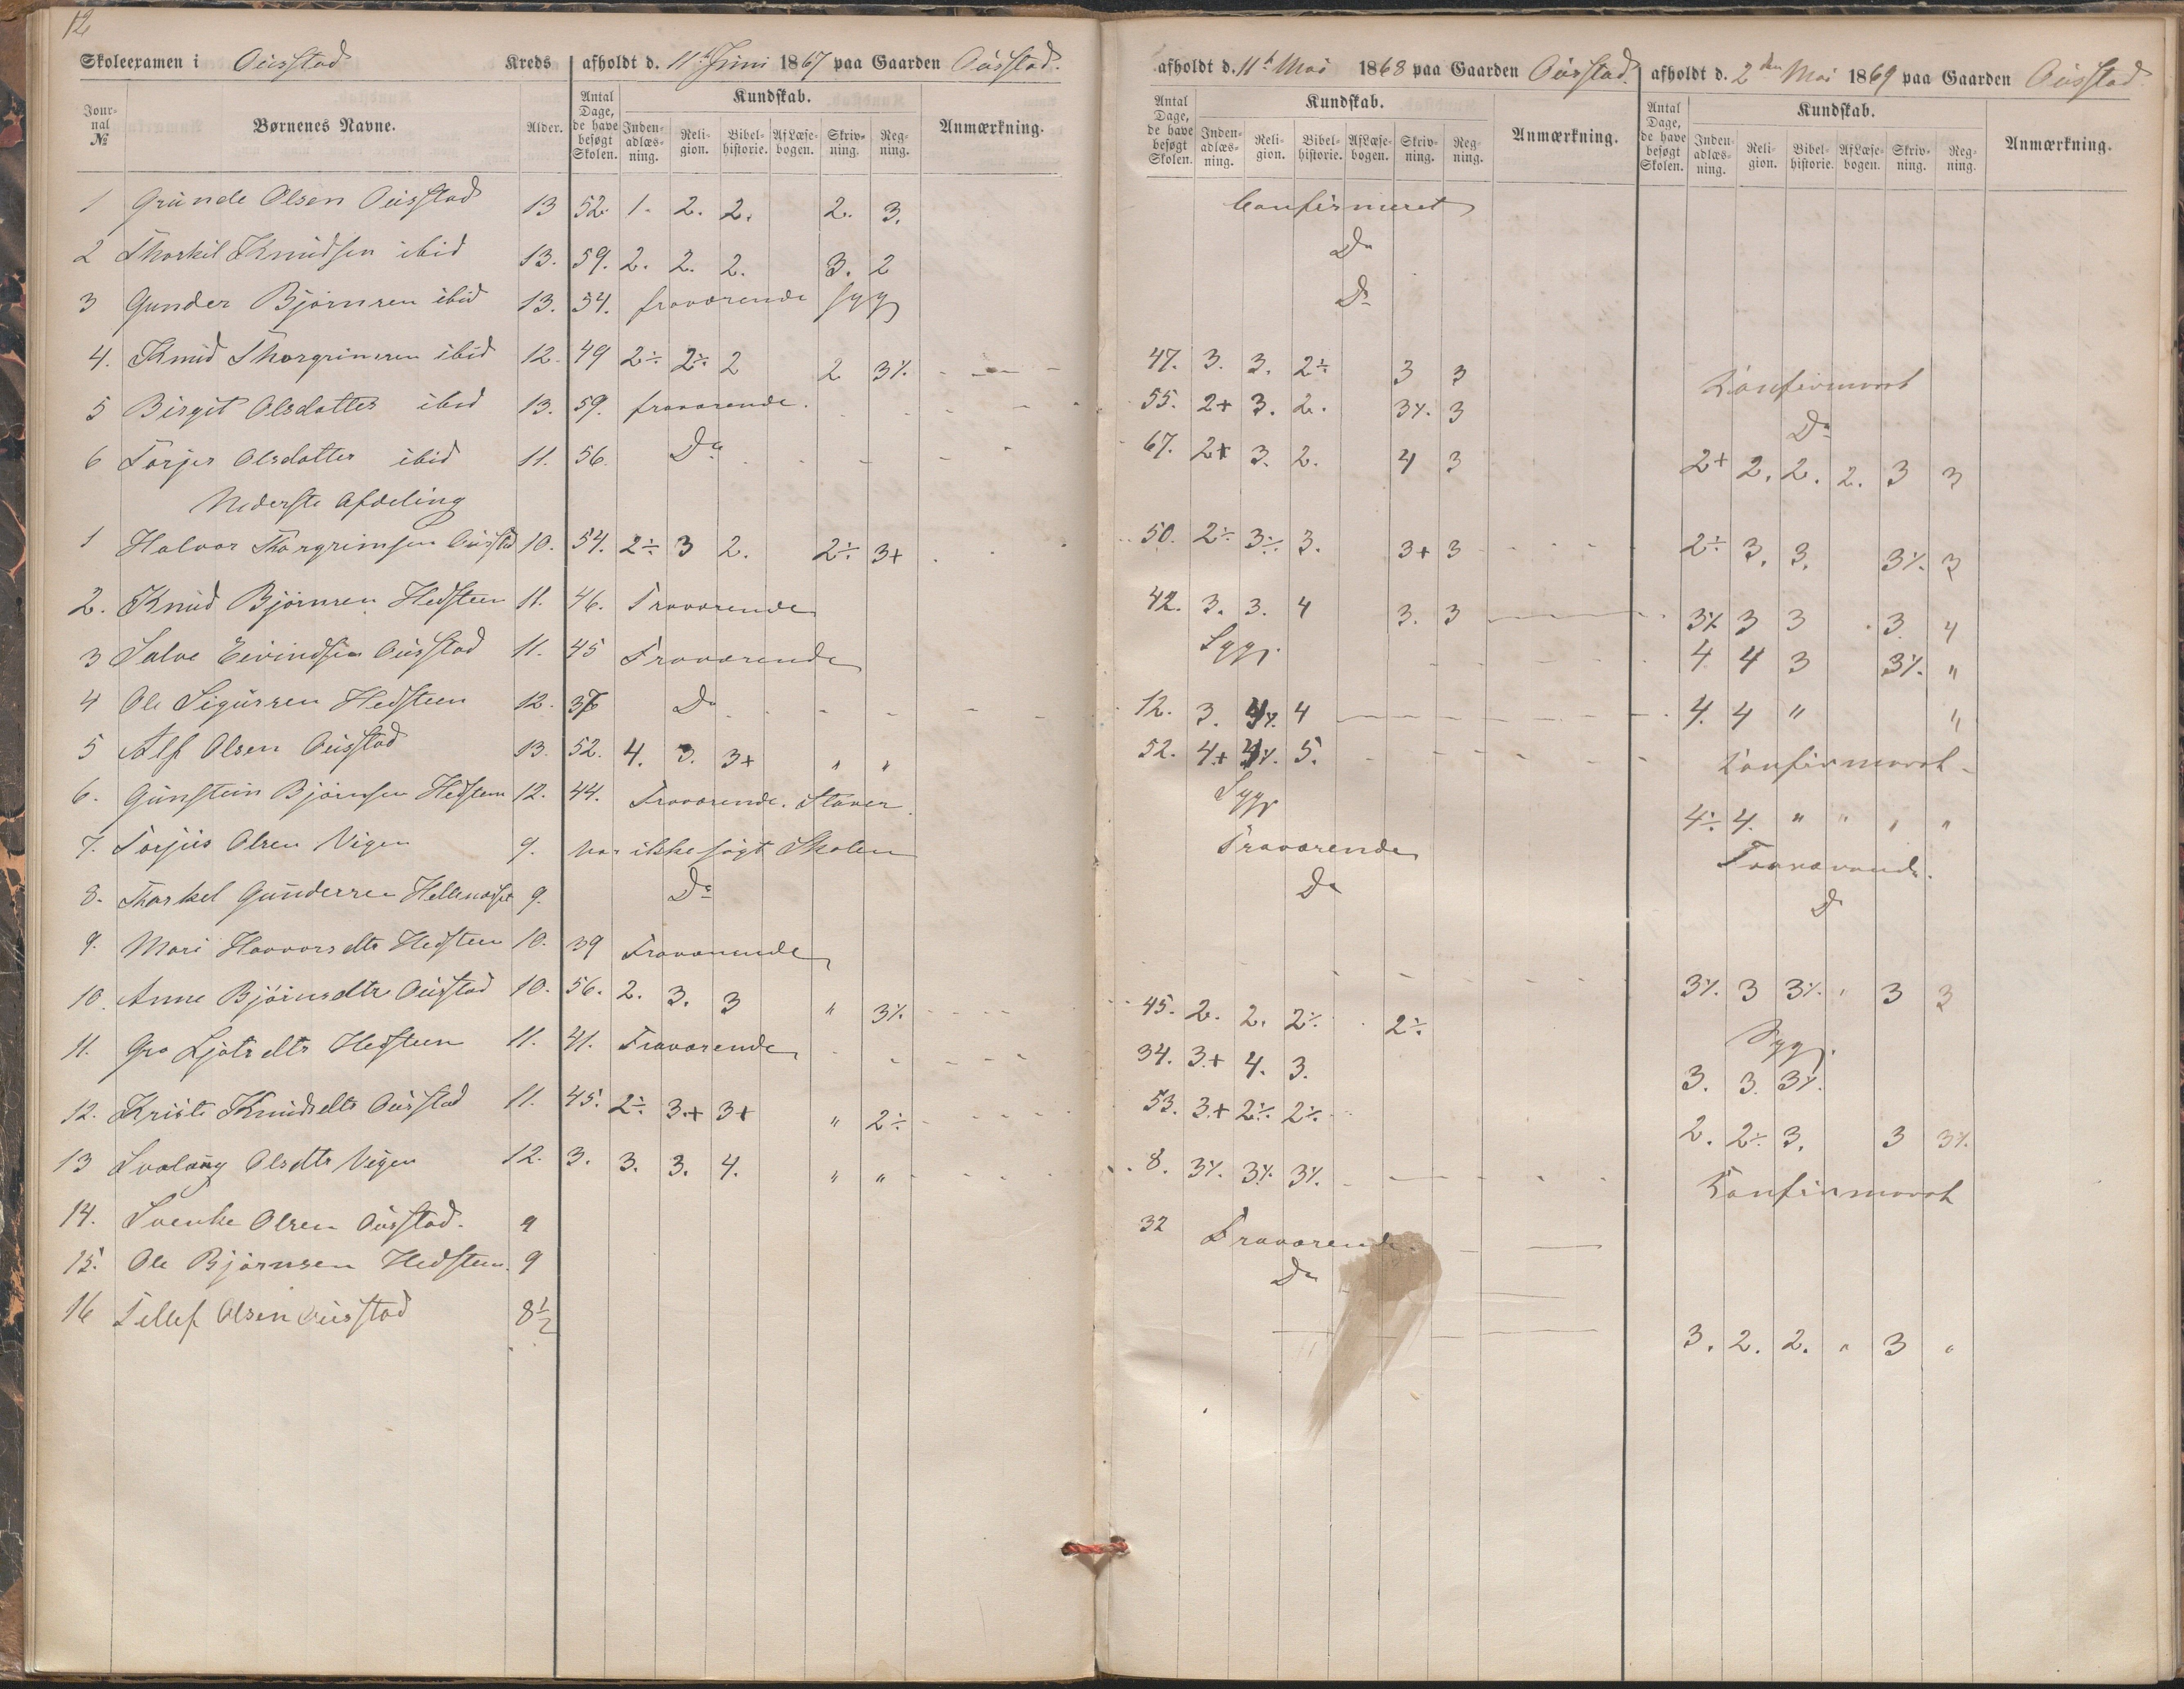 12
Skoleexamen i Ousstad Kreds afholdt d. 11te Juni 1867 paa Gaarden Ousstad.
Journal № Børnenes Navne. Alder. Antal Dage, de have besøgt Skolen. Kundskab. Indenadlæsning. Religion. Bibelhistorie. Af Læsebogen. Skrivning. Regning. Anmærkning.
1 Gunde Olsen Ousstad 13 52 1. 2. 2. 2. 3.
2 Thorkil Knudsen ibid 13. 59. 2. 2. 2. 3. 2
3 Gunder Bjørnsen ibid 13. 54. fraværende syg
4. Knud Thorgrimsen ibid 12 49 2÷ 2÷ 2 2 3÷
5 Birgit Olsdatter ibid 13. 59. fraværende.
6 Torjer Olsdatter ibid 11. 56. Do
Nederste Afdeling
1 Halvor Thorgrimsen Ousstad 10. 54. 2÷ 3 2. 2÷ 3+
2. Knud Bjørnsen Hedsteen 11. 46. Fraværende
3 Salve Eivindsen Ousstad 11. 45 Fraværende
4 Ole Sigursen Hedsteen 12. Do
5 Alf Olsen Ousstad 13. 52. 4. 3. 3+ " "
6. Gunstein Bjørnsen Hedsteen 12. 44. Fraværende.
7. Torjus Olsen Vigen 9. har ikke søgt Skolen
8. Thorkel Gundersen 9. Do
9. Mari Havvorsdtr Hedsteen 10. 39 Fraværende
10. Anne Bjørnsdtr Ousstad 10. 56. 2. 3. 3 " 3÷
11. Gro Ljotsdtr Hedsteen 11. 41. Fraværende
12. Kristi Knudsdtr Ousstad 11. 45. 2÷ 3+ 3+ " 2÷
13 Svalaug Olsdtr Vigen 12. 3. 3. 3. 4. " "
14. Svenke Olsen Ousstad. 9
15. Ole Bjørnsen Hedsteen. 9
16 Tellef Olsen Ousstad 8½
afholdt d. 11te Mai 1868 paa Gaarden Ousstad.
Antal Dage, de have besøgt Skolen. Kundskab. Indenadlæsning. Religion. Bibelhistorie. Af Læsebogen. Skrivning. Regning. Anmærkning.
Confirmeret
Do
Do
47. 3. 3. 2÷ 3 3
55. 2+ 3. 2. 3÷. 3
67. 2+ 3. 2. 4 3
50. 2÷ 3÷ 3. 3+ 3
42. 3. 3. 4 3. 3
Syg.
12. 3. 4÷ 4
52. 4+ 4÷ 5.
Syg
Fraværende
Do
45. 2. 2. 2÷ 2÷
34. 3+ 4. 3.
53. 3+ 2÷ 2÷
8. 3÷ 3÷ 3÷
32 Fraværende
Do
afholdt d. 2den Mai 1869 paa Gaarden Ousstad.
Antal Dage, de have besøgt Skolen. Kundskab. Indenadlæsning. Religion. Bibelhistorie. Af Læsebogen. Skrivning. Regning. Anmærkning.
Konfirmeret
Do
2+ 2. 2. 2. 3 3
2÷ 3. 3. 3÷ 3
3÷ 3 3 3. 4
4. 4 3 3÷ "
4. 4 " "
Konfirmeret
4÷ 4. " " " "
Fraværende.
Do
3÷ 3 3÷ " 3 3
Syg.
3. 3. 3÷.
2. 2÷ 3. 3 3÷
Konfirmeret
3. 2. 2. " 3 "